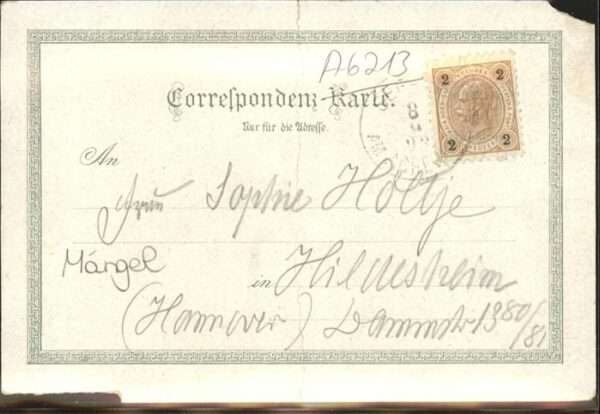 A6213
Correspondenz-Karte.
Nur für die Adresse.
2 2
2 2
An
Frau Sophie Höltje
Märgel
in Hildesheim
(Hannover) Dammstr 1380/81